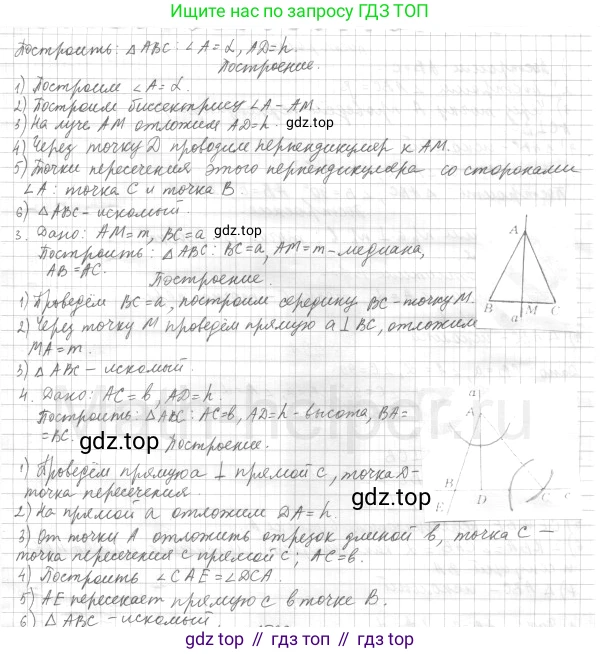 Ищите нас по запросу ГДЗ ТОП
Построить: △ABC: ∠A=α, AD=h.
Построение.
1) Построим ∠A=α.
2) Построим биссектрису ∠A - AM.
3) На луче AM отложим AD=h.
gdz.top
4) Через точку D проводим перпендикуляр к AM.
5) Точки пересечения этого перпендикуляра со сторонами
∠A: точка C и точка B.
6) △ABC - искомый.
3. Дано: AM=m, BC=a
gdz.top
Построить: △ABC: BC=a, AM=m - медиана,
AB=AC.
Построение.
1) Проведём BC=a, построим середину BC - точку M.
2) Через точку M проведём прямую a⊥BC, отложим
MA=m.
3) △ABC - искомый.
A
B
M
C
a
4. Дано: AC=b, AD=h.
Построить: △ABC: AC=b, AD=h - высота, BA=
=BC.
gdz.top
Построение.
1) Проведём прямую a ⊥ прямой c, точка D -
точка пересечения.
gdz.top
2) На прямой a отложим DA=h.
3) От точки A отложить отрезок длиной b, точка C -
точка пересечения с прямой c; AC=b.
4) Построить ∠CAE=∠DCA.
5) AE пересекает прямую c в точке B.
6) △ABC - искомый
a
A
B
E
D
C
c
gdz top // гдз топ // gdz top // гдз топ